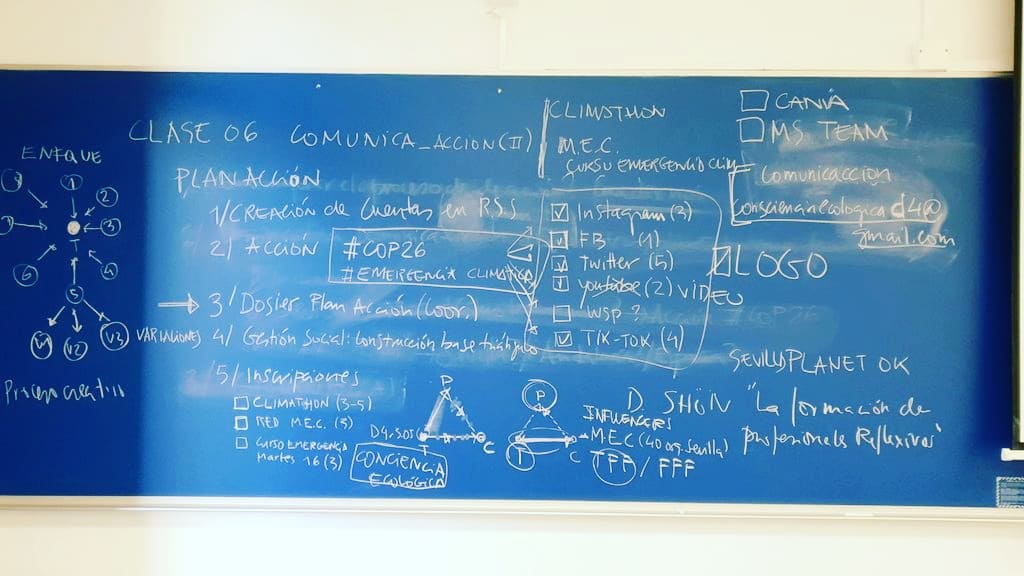 ENFOQUE
1
2
3
4
5
6
V1
V2
V3
VARIACIONES
Proceso creativo
CLASE 06 COMUNICA_ACCION(II)
PLAN ACCIÓN
1/ CREACIÓN de Cuentas en RSS
2) ACCIÓN
#COP26
#EMERGENCIA CLIMATICA
3/ Dosier Plan Acción (Coor.)
4/ Gestión Social: Construcción base triángulo
5/ Inscripciones
CLIMATHON (3-5)
RED M.E.C. (3)
CURSO EMERGENCIA
Martes 16 (3)
CLIMATHON
M.E.C.
CURSO EMERGENCIA CLIM
Instagram (3)
FB (1)
Twitter (5)
youtube (2) VIDEO
WSP ?
TIK-TOK (4)
CANVA
MS TEAM
Comunicaccion
conscienciaecologica d4@
gmail.com
LOGO
SEVILLAPLANET OK
P
T
C
D4.SOS
CONCIENCIA
ECOLÓGICA
P
T
C
INFLUENCERS
MEC (40 org. Sevilla)
TFF / FFF
D SHÖN "La formación de
profesionales Reflexivos"